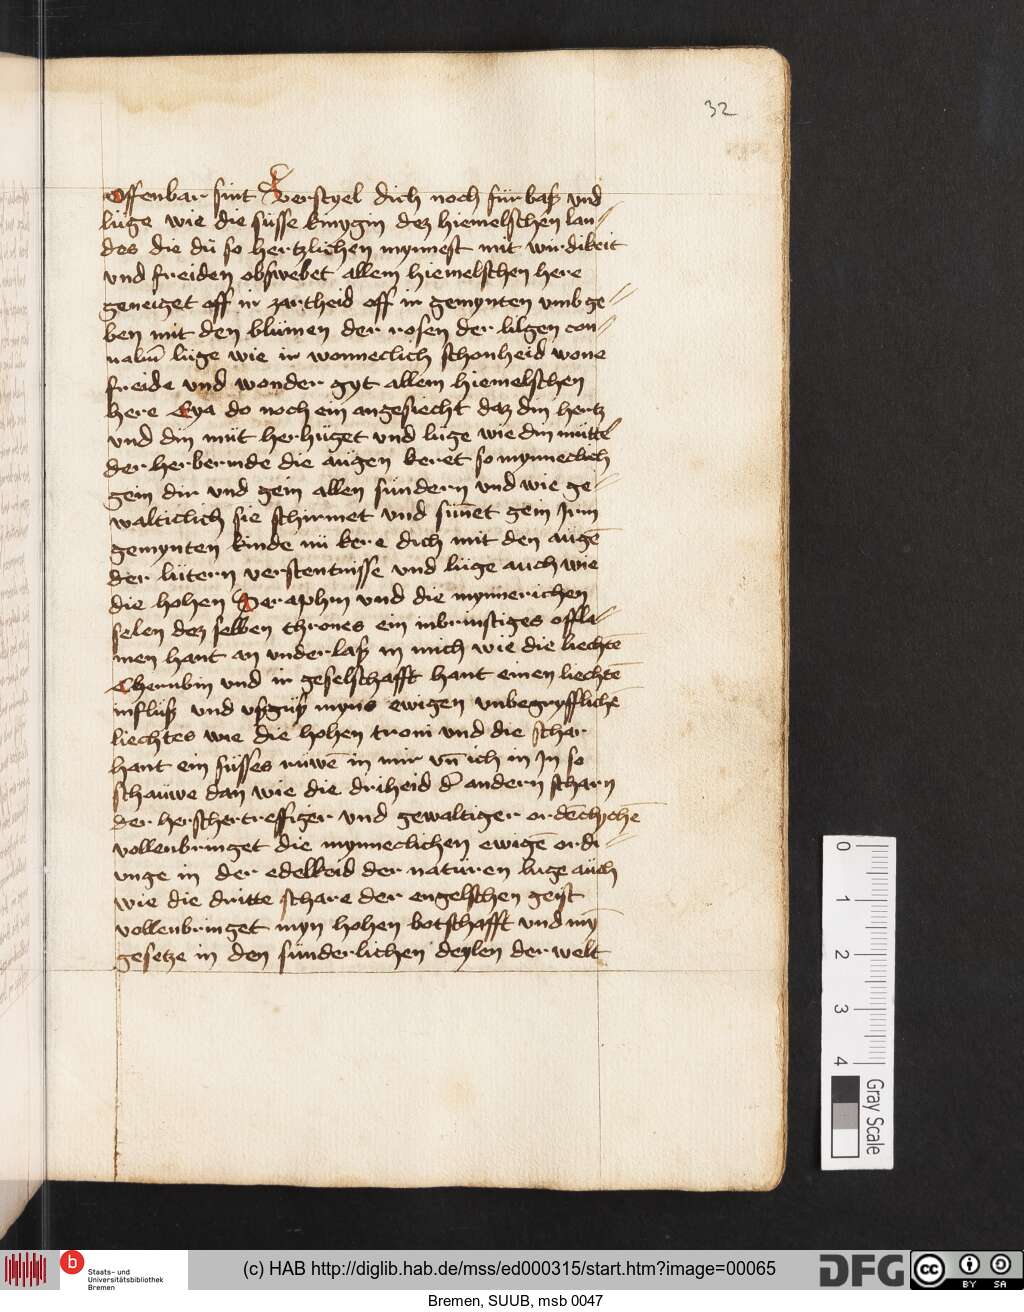 32
Offenbar sint Verstyel dich noch für baß vnd
lüge wie die süsse kinygin dez hiemelschen lan-
des die dü so hertzlichen mynnest mit wirdikeit
vnd freiden obswebet allem hiemelschen here
geneiget off ir zartheid off ir gemynten vmb ge-
ben mit den blümen der rosen der lilgen con-
ualiū lüge wie ir wonneclich schonheid wone
freide vnd wonder gyt allem hiemelschen
here Eya do noch ein angesiecht daz din hertz
vnd din müt herhüget vnd lüge wie din mütte
der herbermde die aügen keret so mynneclich
gein dir vnd gein allen sündern vnd wie ge-
walticlich sie schirmet vnd sünet gein Irm
gemynten kinde nü kere dich mit den aügē
der lütern verstentnisse vnd lüge auch wie
die hohen Seraphin vnd die mynnerichen
selen dez selben thrones ein inbrinstiges offla-
men hant an vnderlaß in mich wie die liechtē
Cherubin vnd ir geselschafft hant einen liechtē
influß vnd vßguß myns ewigen vnbegryfflichē
liechtes wie die hohen troni vnd die schar
hant ein süsses rüwē in mir vn̄ ich in In so
schaüwe dan wie die driheid d' andern scharn
der herschertreffiger vnd gewaltiger
vollenbringet die mynneclichen ewigē ordi-
unge in der edelkeid der natüren luge aüch
wie die dritte schare der engelschen geist
vollenbringet myn hohen botschafft vnd mȳ
gesetze in den sünderlichen deylen der welt
0
1
2
3
4
Gray Scale
b
Staats- und
Universitätsbibliothek
Bremen
(c) HAB http://diglib.hab.de/mss/ed000315/start.htm?image=00065
DFG
cc BY SA
Bremen, SUUB, msb 0047